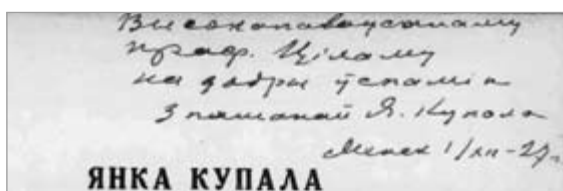 Высокапаважанаму
праф. Ціламу
на добры ўспамін
З пашанай Я. Купала
Менск 1/XII-27 г.
ЯНКА КУПАЛА